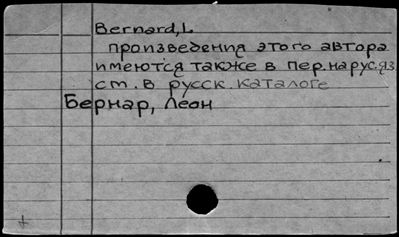 Bernard, L
произведения этого автора
имеются также в пер. на рус. яз.
ст. в русск. каталоге
Бернар, Леон